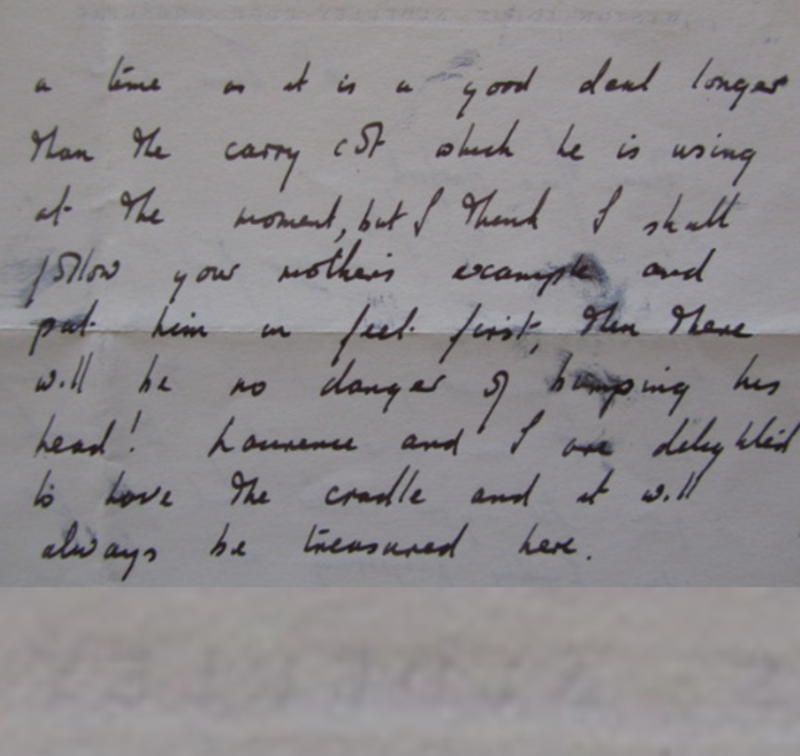 a time as it is a good deal longer
than the carry cot which he is using
at the moment, but I think I shall
follow your mothers example and
put him in feet first, then there
will be no danger of bumping his
head! Laurence and I are delighted
to have the cradle and it will
always be treasured here.